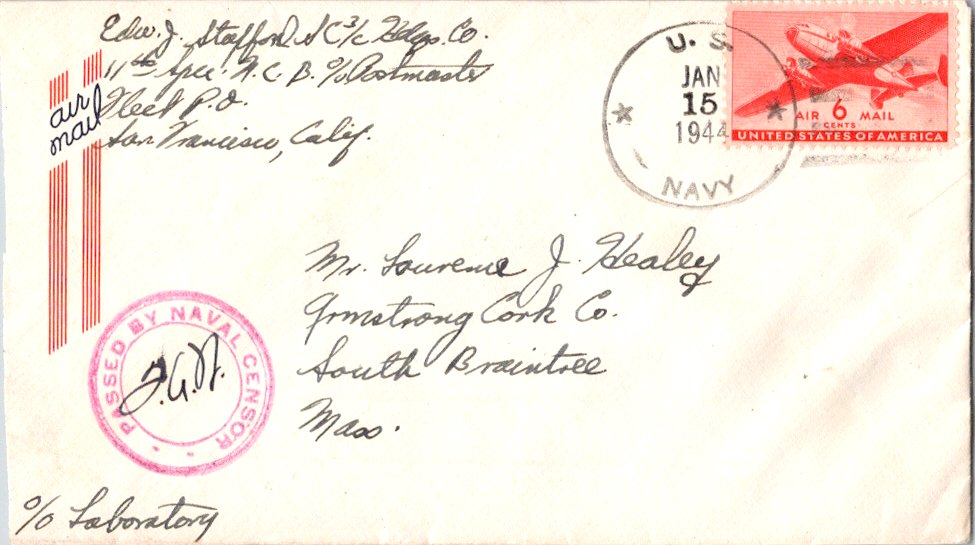 Edw. J. Stafford S C 3/c Hdqs. Co.
11th Spec. N. C. B. c/o Postmaster
Fleet P. O.
San Francisco, Calif.
air
mail
U. S.
JAN
15
1944
NAVY
AIR 6 MAIL
CENTS
UNITED STATES OF AMERICA
Mr. Lawrence J. Healey
Armstrong Cork Co.
South Braintree
Mass.
PASSED BY NAVAL CENSOR
c/o Laboratory